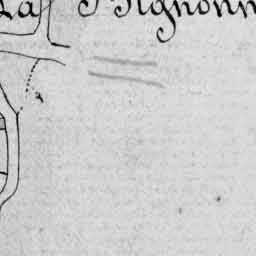 La Pignonn